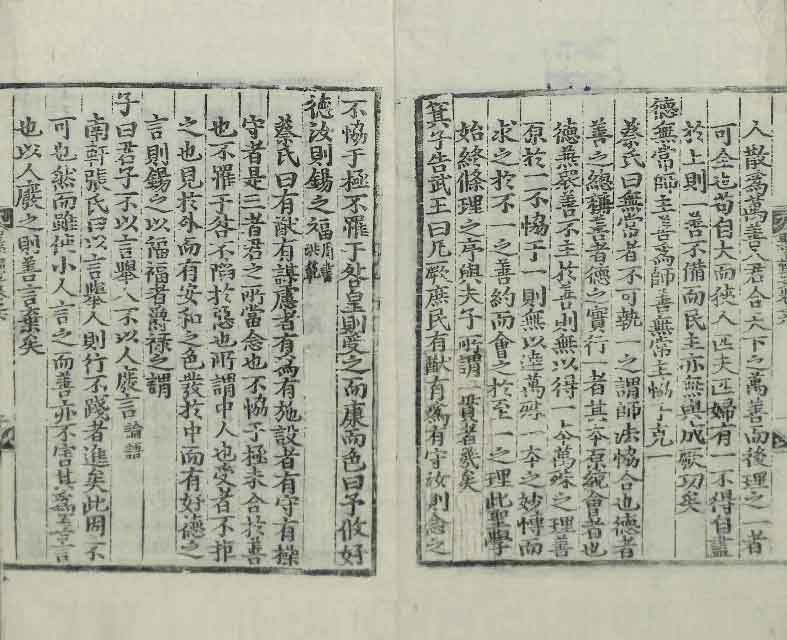 人散爲萬善人君合天下之萬善而後理之一者
可全也苟自大而狹人匹夫匹婦有一不得自盡
於上則一善不備而民主亦無與成厥功矣
德無常師主善爲師善無常主恊于克一
蔡氏曰無常者不可執一之謂師法恊合也德者
善之緫稱善者德之實行一者其本原統會者也
德兼衆善不主於善則無以得一本萬殊之理善
原於一不恊于一則無以達萬殊一本之妙博而
求之於不一之善約而會之於至一之理此聖學
始終條理之序與夫子所謂一貫者幾矣
箕子告武王曰凡厥庶民有猷有爲有守汝則念之
不恊于極不罹于咎皇則受之而康而色曰予攸好
德汝則錫之福周書洪範
蔡氏曰有猷有謀慮者有爲有施設者有守有操
守者是三者君之所當念也不恊于極未合於善
也不罹于咎不陷於惡也所謂中人也受者不拒
之也見於外而有安和之色發於中而有好德之
言則錫之以福福者爵祿之謂
子曰君子不以言舉人不以人廢言論語
南軒張氏曰以言舉人則行不踐者進矣此固不
可也然而雖使小人言之而善亦不害其爲善言
也以人廢之則善言棄矣